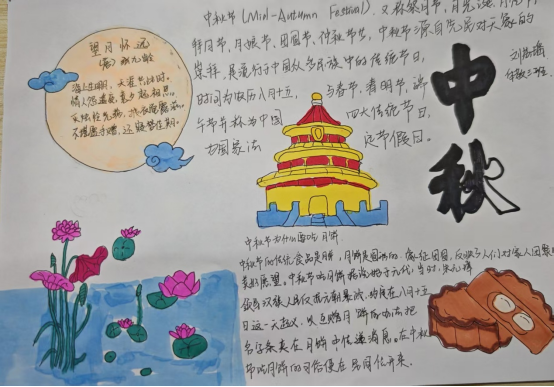 望月怀远
(唐) 张九龄
海上生明月,天涯共此时。
情人怨遥夜,竟夕起相思。
灭烛怜光满,披衣觉露滋。
不堪盈手赠,还寝梦佳期。
中秋节(Mid-Autumn Festival),又称祭月节、月光诞、
拜月节、月娘节、团圆节、仲秋节等,中秋节源自先民对天象的
崇拜,是流行于中国众多民族中的传统节日,
时间为农历八月十五,与春节、清明节、端
午节并称为中国四大传统节日,
为国家法定节假日。
中秋
中秋节为什么要吃月饼
中秋节的传统食品是月饼,月饼是圆形的,象征团圆,反映了人们对家人团聚
美好愿望。中秋节吃月饼据说始于元代,当时,朱元璋
八月十五
日这一天起义,以互赠月饼的办法把
字条夹在月饼中传递消息。在中秋
节吃月饼的习俗便在民间传开来。